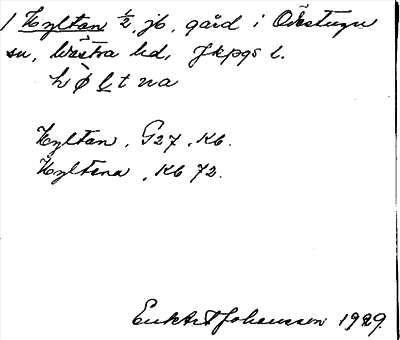 1 Hyltan ½, jb, gård i Öxestugu
sn, Västra hd, Jkpgs l.
hø̀ḷtna
Hyltan, G27, Kb.
Hyltena, Kb 72.
Johansson 1929.